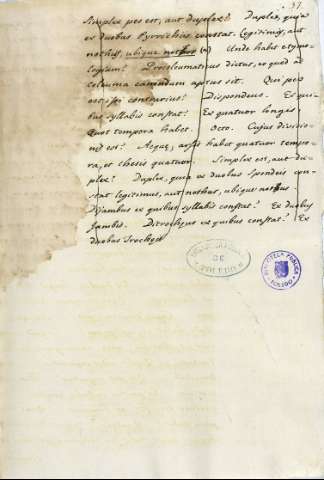 37
simplex pes est, aut duplex? Duplex, quia
ex duobus Pyrrichiis constat. Legitimus, aut
nothus, ubique nothus (a) Unde habet etymo-
logiam? Proceleumaticus dictus, eo quod ad
celeuma canendum aptus sit. Qui pes
est ipsi contrarius? Dispondeus. Ex qui-
bus syllabis constat? Ex quatuor longis.
Quot tempora habet. Octo. Cujus divisio-
nis est? Aequæ, arsis habet quatuor tempo-
ra, et thesis quatuor. Simplex est, aut du-
plex? Duplex, quia ex duobus spondeis con-
stat legitimus, aut nothus, ubique nothus
Dijambus ex quibus syllabis constat? Ex duobus
Jambis. Ditrocheus ex quibus constat? Ex
duobus Trocheis
DE
TOLEDO
BIBLIOTECA PUBLICA
TOLEDO